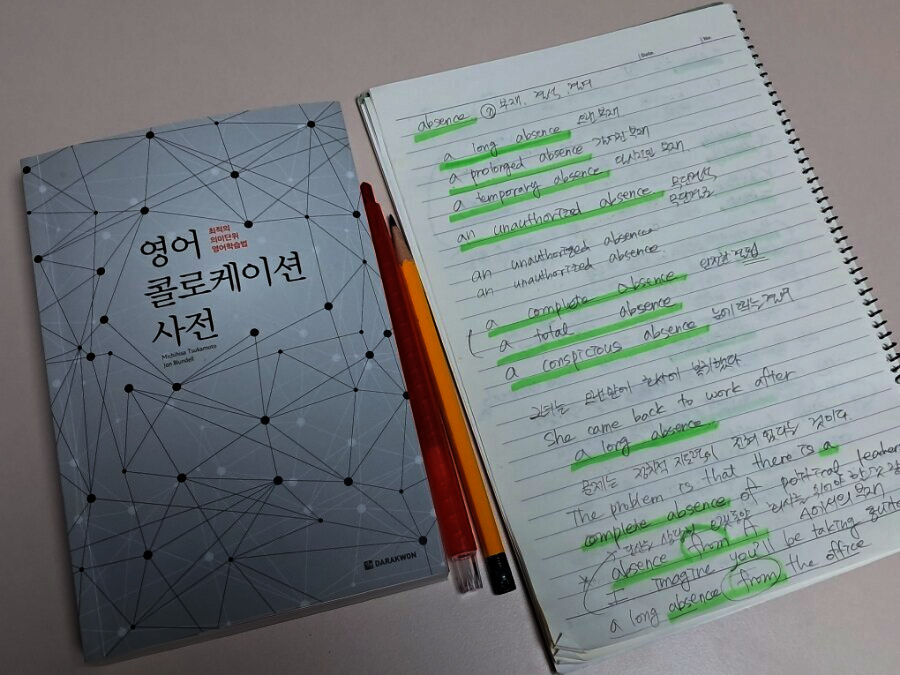 영어
최적의
의미단위
영어학습법
콜로케이션
사전
Michihisa Tsukamoto
Jon Blundell
DARAKWON
absence 부재, 결석, 결여
a long absence 오랜 부재
a prolonged absence 부재
a temporary absence 일시적인 부재
an unauthorized absence 무단결석
an unauthorized absence
an unauthorized absence
a complete absence 완전한
a total absence
a conspicuous absence 눈에 띄는 결여
그녀는 오랜만에 회사에 복귀했다
She came back to work after
a long absence
문제는 정치적 지도력이 전혀 없다는 것이다.
The problem is that there is a
complete absence of political
absence from
I imagine you'll be taking quite
a long absence from the office